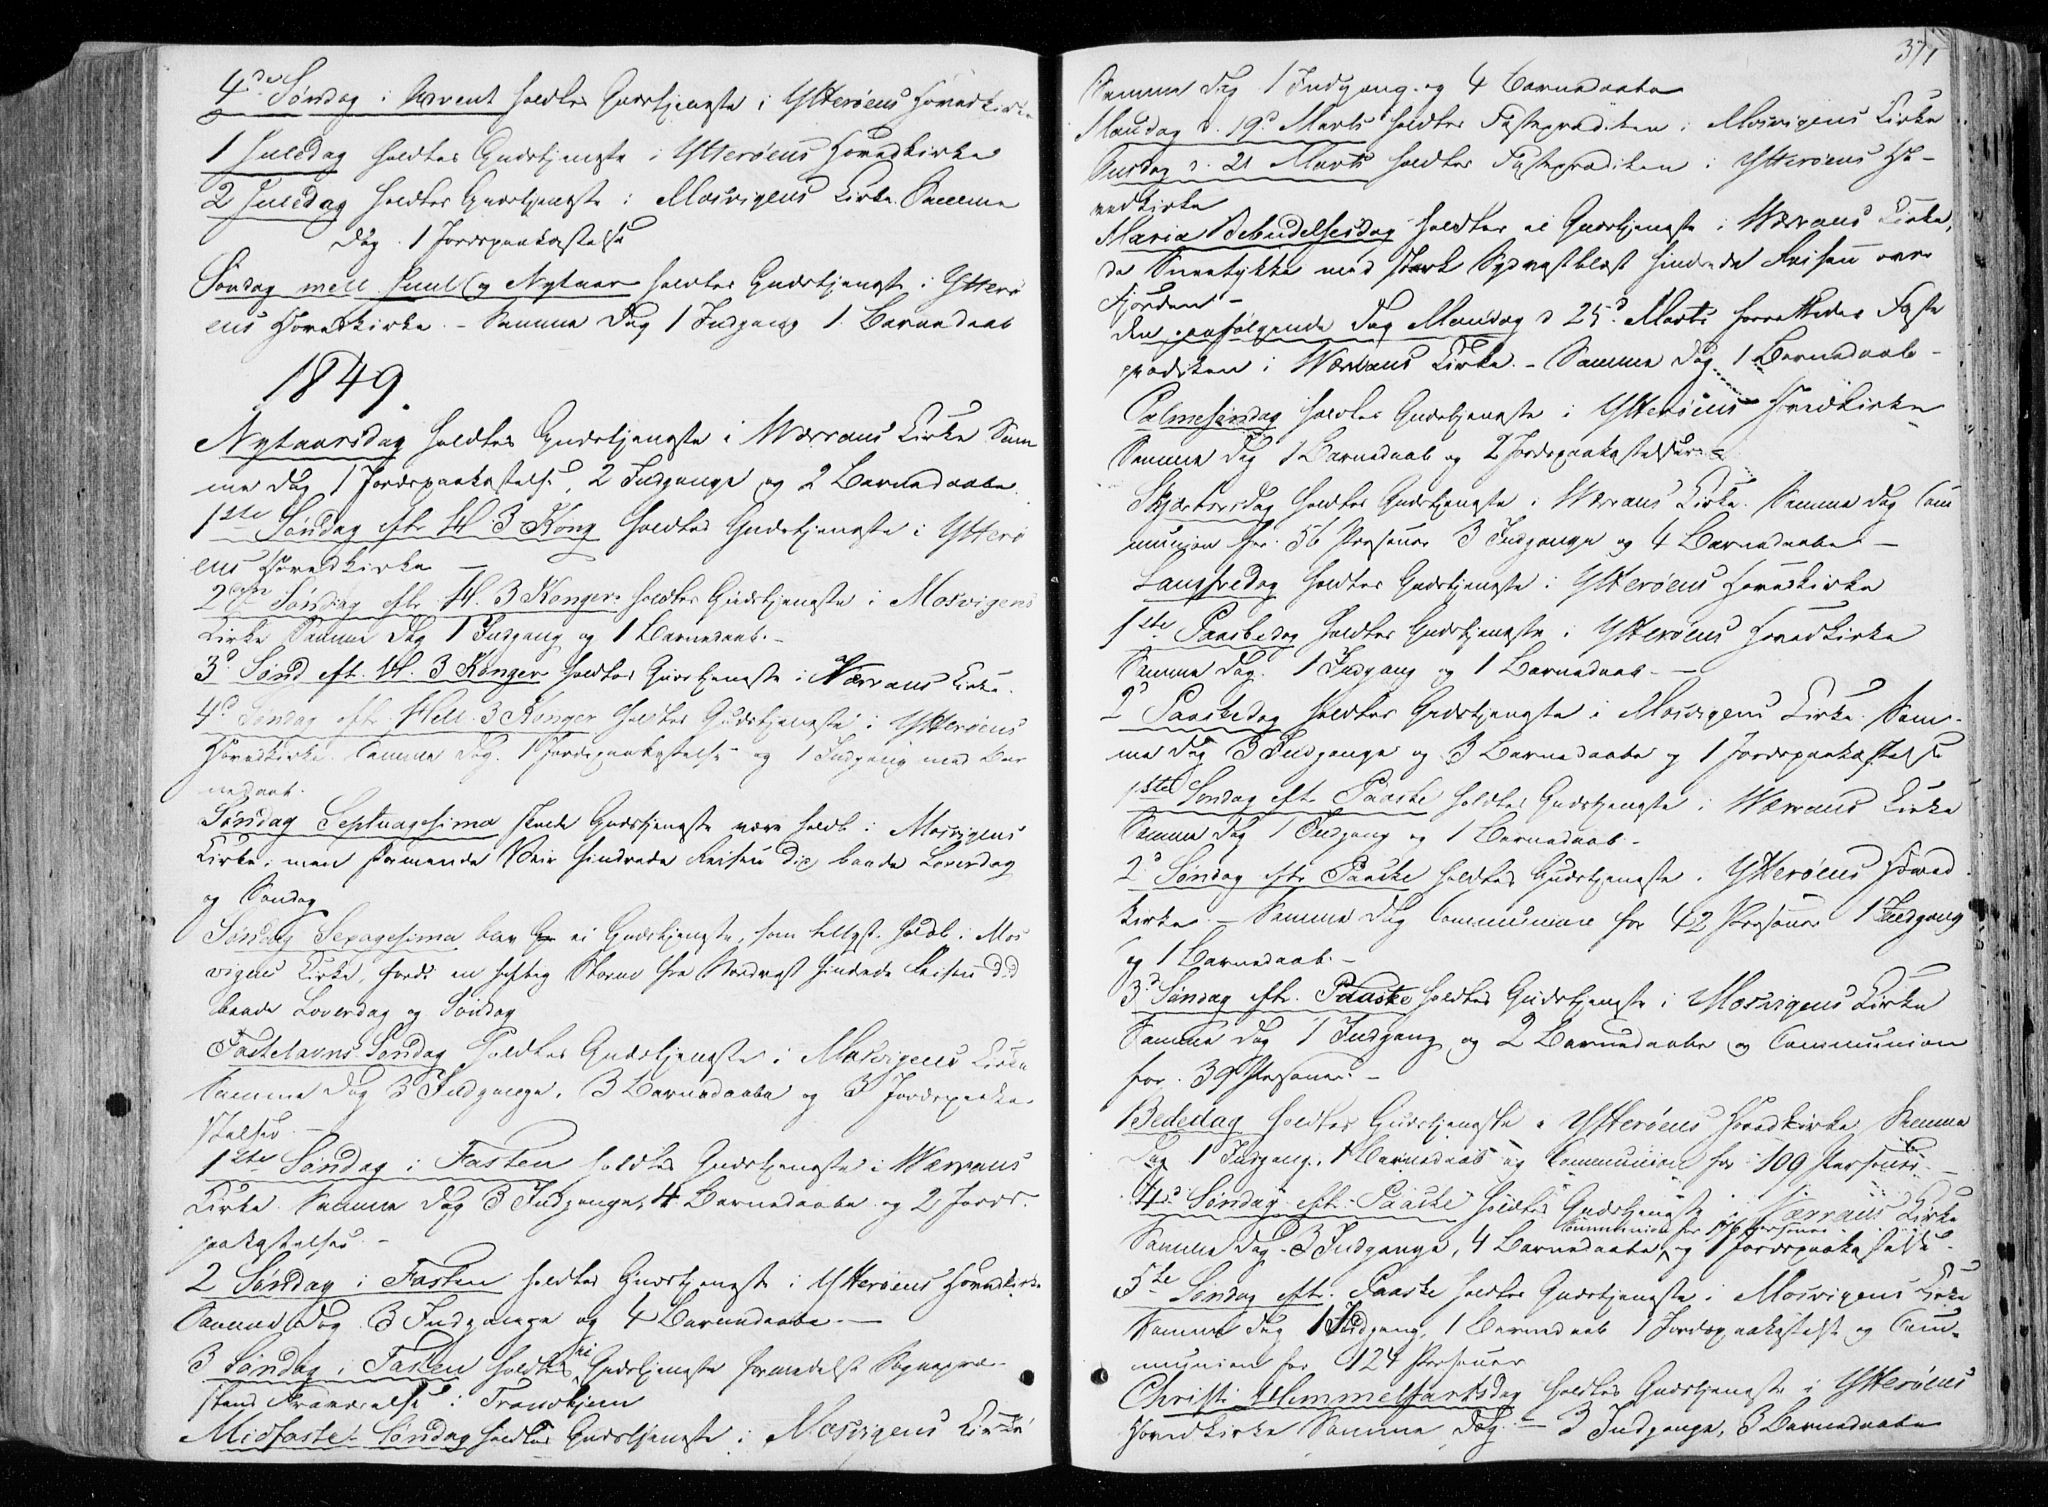 4de Søndag i Advent holdtes Gudstjeneste i Ytterøens Hovedkirke
1 Juledag holdtes Gudstjeneste i Ytterøens Hovedkirke
2 Juledag holdtes Gudstjeneste i Mosvigens Kirke. Samme
Dag 1 Jordspaakastelse
Søndag mell. Juul og Nytaar holdtes Gudstjeneste i Ytterø
ens Hovedkirke. – Samme Dag 1 Indgang 1 Barnedaab
1849.
Nytaarsdag holdtes Gudstjeneste i Værrans Kirke Sam
me Dag 1 Jordspaakastelse, 2 Indgange og 2 Barnedaabe.
1ste Søndag eftr H 3 Kong holdtes Gudstjeneste i Ytterø
ens Hovedkirke –
2den Søndag eftr. H. 3 Konger holdtes Gudstjeneste i Mosvigens
Kirke Samme Dag 1 Indgang og 1 Barnedaab. –
3d Sønd eft. H. 3 Konger holdtes Gudstjeneste i Værrans Kirke.
4d Søndag eftr Hell. 3 Konger holdtes Gudstjeneste i Ytterøens
Hovedkirke. Samme Dag. 1 Jordspaakastelse og 1 Indgang med Bar
nedaab.
Søndag Septuagesima skulde Gudstjeneste være holdt i Mosvigens
Kirke, men stormende Veir hindrede Reisen did baade Løverdag
og Søndag
Søndag Sexagesima blev ei Gudstjeneste, som tillyst, holdt i Mos
vigens Kirke, fordi en heftig Storm fra Nordvest hindrede Reisen did
baade Løverdag og Søndag
Fastelavns Søndag holdtes Gudstjeneste i Mosvigens Kirke
Samme Dag 3 Indgange, 3 Barnedaabe og 3 Jordspaaka
stelser. –
1ste Søndag i Fasten holdtes Gudstjeneste i Værrans
Kirke. Samme Dag 3 Indgange, 4 Barnedaabe og 2 Jords-
paakastelser. –
2 Søndag i Fasten holdtes Gudstjeneste i Ytterøens Hovedkirke
Samme Dag 3 Indgange og 4 Barnedaabe. –
3 Søndag i Fasten holdtes ei Gudstjeneste formedelst Sognepræ-
stens Fraværelse i Trondhjem
Midfaste Søndag holdtes Gudstjeneste i Mosvigens Kirke
371
Samme Dag 1 Indgang og 4 Barnedaabe
Mandag d. 19d Marts holdtes Fasteprædiken i Mosvigens Kirke
Onsdag d. 21 Marts holdtes Fasteprædiken i Ytterøens Ho-
vedkirke
Mariæ Bebudelsesdag holdtes ei Gudstjeneste i Værrans Kirke,
da Sneetykke med stærk Sydvestblæst hindrede Reisen over
Fjorden –
den paafølgende Dag Mandag d 25d Marts forrettedes Faste
prædiken i Værrans Kirke. – Samme Dag 1 Barnedaab –
Palmesøndag holdtes Gudstjeneste i Ytterøens Hovedkirke
Samme Dag 1 Barnedaab og 2 Jordspaakastelser –
Skjærtorsdag holdtes Gudstjeneste i Værrans Kirke. Samme Dag Com
munion for 56 Personer 3 Indgange og 4 Barnedaabe –
Langfredag holdtes Gudstjeneste i Ytterøens Hovedkirke
1ste Paaskedag holdtes Gudstjeneste i Ytterøens Hovedkirke
Samme Dag. 1 Indgang og 1 Barnedaab. –
2d Paaskedag holdtes Gudstjeneste i Mosvigens Kirke. Sam-
me Dag 3 Indgange og 3 Barnedaabe og 1 Jordspaakastelse
1ste Søndag eftr Paaske holdtes Gudstjeneste i Værrans Kirke
Samme Dag 1 Indgang og 1 Barnedaab. –
2d Søndag eftr Paaske holdtes Gudstjeneste i Ytterøens Hoved
kirke. – Samme Dag Communion for 42 Personer 1 Indgang
og 1 Barnedaab. –
3d Søndag eftr. Paaske holdtes Gudstjeneste i Mosvigens Kirke
Samme Dag 1 Indgang og 2 Barnedaabe og Communion
for 39 Personer. –
Bededag holdtes Gudstjeneste i Ytterøens Hovedkirke Samme
Dag 1 Indgang, 1 Barnedaab og Communion for 109 Personer. –
4d Søndag eftr. Paaske holdtes Gudstjeneste i Værrans Kirke
Communion for 176 personer
Samme Dag 3 Indgange, 4 Barnedaabe, og 1 Jordspaakastelse.
5te Søndag eftr. Paaske holdtes Gudstjeneste i Mosvigens Kirke
Samme Dag 1 Indgang, 1 Barnedaab 1 Jordspaakastelse og Com-
munion for 124 Personer
Christi Himmelfartsdag holdtes Gudstjeneste i Ytterøens
Hovedkirke Samme Dag. – 3 Indgange, 3 Barnedaabe